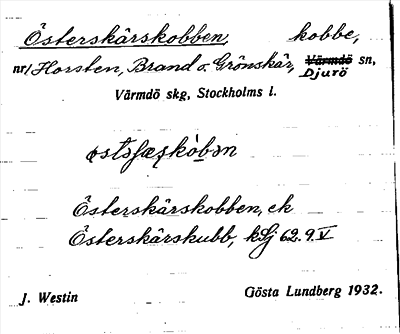 Österskärskobben, kobbe,
nr/Horsten, Brand o. Grönskär, Värmdö sn,
Djurö
Värmdö skg, Stockholms l.
Österskärskobben, ek
Österskärskubb, kSj 62.9.V
J. Westin Gösta Lundberg 1932.